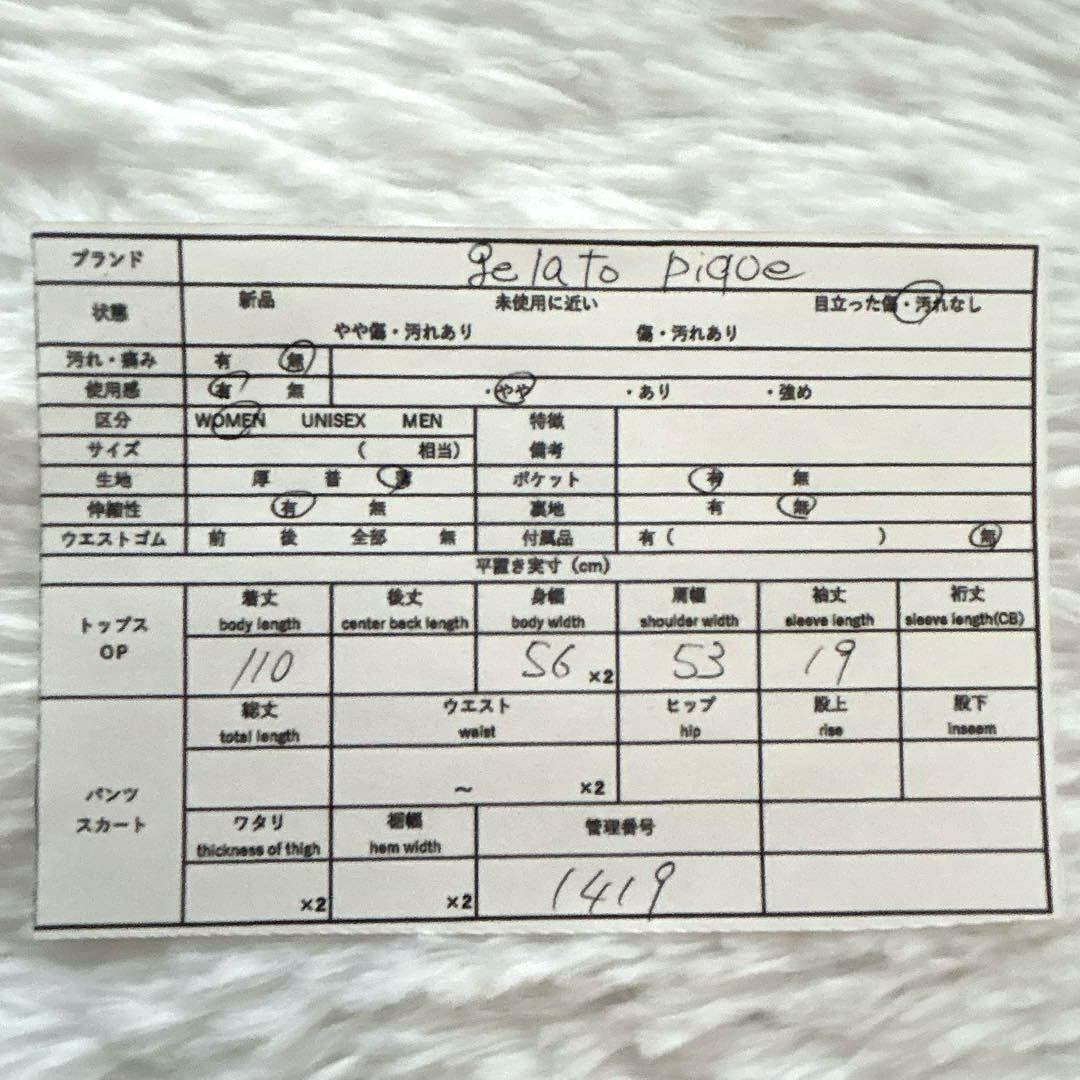 ブランド gelato pique
状態 新品 未使用に近い 目立った傷・汚れなし
やや傷・汚れあり 傷・汚れあり
汚れ・痛み 有 無
使用感 有 無 ・やや ・あり ・強め
区分 WOMEN UNISEX MEN 特徴
サイズ ( 相当) 備考
生地 厚 普 薄 ポケット 有 無
伸縮性 有 無 裏地 有 無
ウエストゴム 前 後 全部 無 付属品 有 ( ) 無
平置き実寸 (cm)
トップス OP
着丈 後丈 身幅 肩幅 袖丈 裄丈
body length center back length body width shoulder width sleeve length sleeve length(CB)
110 56 ×2 53 19
パンツ スカート
総丈 ウエスト ヒップ 股上 股下
total length waist hip rise inseam
～ ×2
ワタリ 裾幅 管理番号
thickness of thigh hem width
×2 ×2 1419